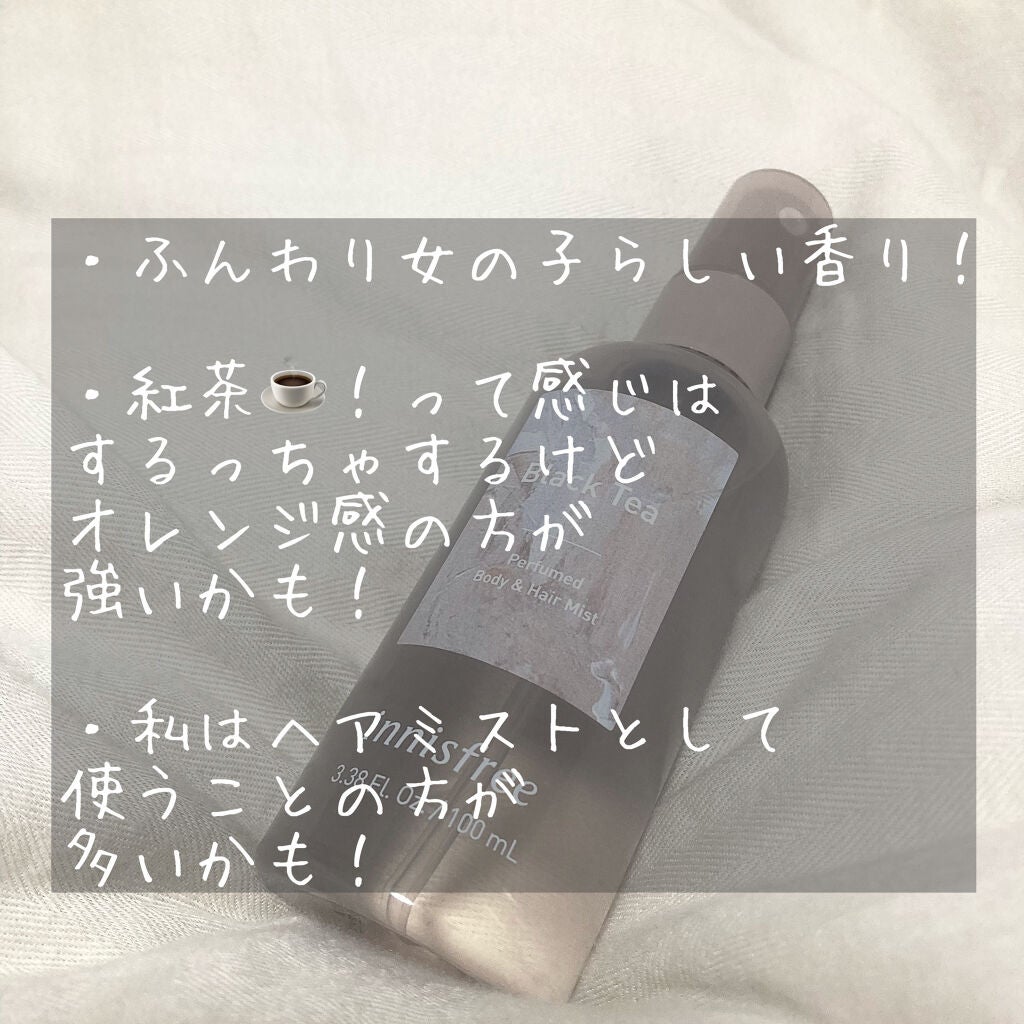 ・ふんわり女の子らしい香り！
・紅茶☕！って感じは
するっちゃするけど
オレンジ感の方が
強いかも！
・私はヘアミストとして
使うことの方が
多いかも！
Black Tea
Perfumed
Body & Hair Mist
innisfree
3.38 Fl. OZ / 100 mL